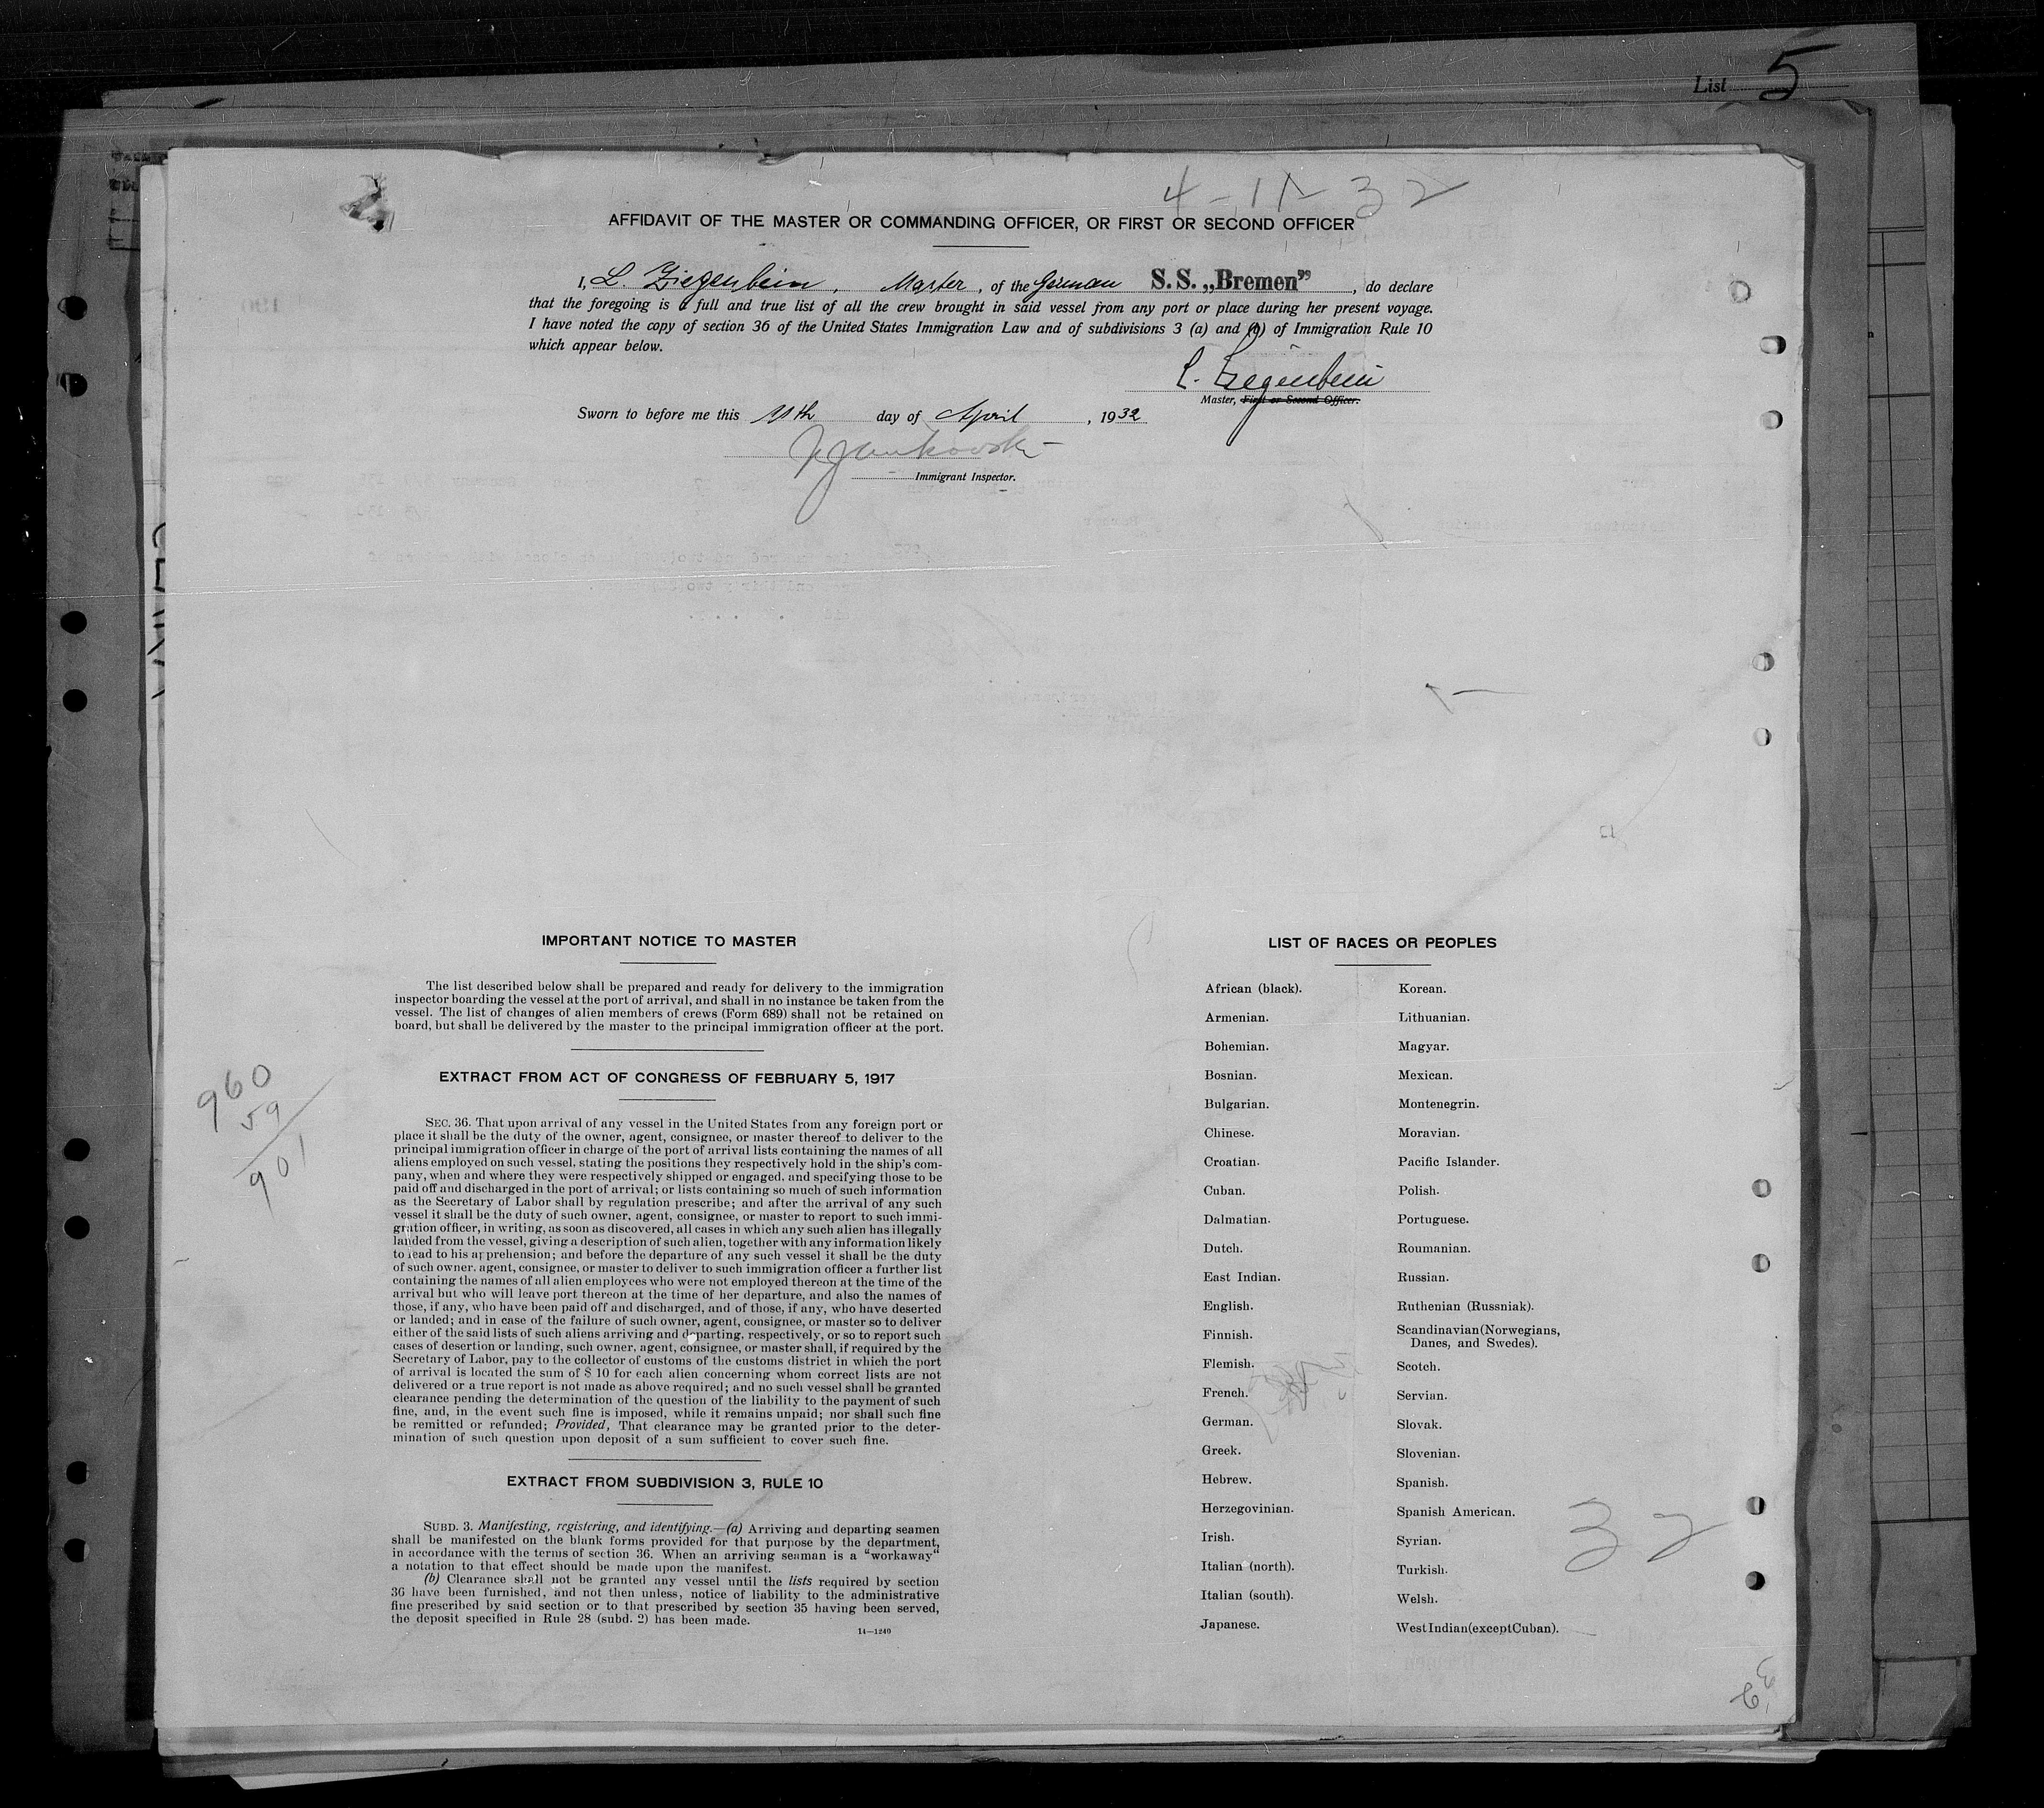 List 5
4-11-32
AFFIDAVIT OF THE MASTER OR COMMANDING OFFICER, OR FIRST OR SECOND OFFICER
I, L. Ziegenbein, Master, of the German S.S. „Bremen”, do declare
that the foregoing is a full and true list of all the crew brought in said vessel from any port or place during her present voyage.
I have noted the copy of section 36 of the United States Immigration Law and of subdivisions 3 (a) and (b) of Immigration Rule 10
which appear below.
L. Ziegenbein
Master, First or Second Officer.
Sworn to before me this 11th day of April, 1932
Immigrant Inspector.
IMPORTANT NOTICE TO MASTER
The list described below shall be prepared and ready for delivery to the immigration
inspector boarding the vessel at the port of arrival, and shall in no instance be taken from the
vessel. The list of changes of alien members of crews (Form 689) shall not be retained on
board, but shall be delivered by the master to the principal immigration officer at the port.
EXTRACT FROM ACT OF CONGRESS OF FEBRUARY 5, 1917
960
59
901
SEC. 36. That upon arrival of any vessel in the United States from any foreign port or
place it shall be the duty of the owner, agent, consignee, or master thereof to deliver to the
principal immigration officer in charge of the port of arrival lists containing the names of all
aliens employed on such vessel, stating the positions they respectively hold in the ship's com-
pany, when and where they were respectively shipped or engaged, and specifying those to be
paid off and discharged in the port of arrival; or lists containing so much of such information
as the Secretary of Labor shall by regulation prescribe; and after the arrival of any such
vessel it shall be the duty of such owner, agent, consignee, or master to report to such immi-
gration officer, in writing, as soon as discovered, all cases in which any such alien has illegally
landed from the vessel, giving a description of such alien, together with any information likely
to lead to his apprehension; and before the departure of any such vessel it shall be the duty
of such owner, agent, consignee, or master to deliver to such immigration officer a further list
containing the names of all alien employees who were not employed thereon at the time of the
arrival but who will leave port thereon at the time of her departure, and also the names of
those, if any, who have been paid off and discharged, and of those, if any, who have deserted
or landed; and in case of the failure of such owner, agent, consignee, or master so to deliver
either of the said lists of such aliens arriving and departing, respectively, or so to report such
cases of desertion or landing, such owner, agent, consignee, or master shall, if required by the
Secretary of Labor, pay to the collector of customs of the customs district in which the port
of arrival is located the sum of $ 10 for each alien concerning whom correct lists are not
delivered or a true report is not made as above required; and no such vessel shall be granted
clearance pending the determination of the question of the liability to the payment of such
fine, and, in the event such fine is imposed, while it remains unpaid; nor shall such fine
be remitted or refunded; Provided, That clearance may be granted prior to the deter-
mination of such question upon deposit of a sum sufficient to cover such fine.
EXTRACT FROM SUBDIVISION 3, RULE 10
SUBD. 3. Manifesting, registering, and identifying.—(a) Arriving and departing seamen
shall be manifested on the blank forms provided for that purpose by the department,
in accordance with the terms of section 36. When an arriving seaman is a “workaway“
a notation to that effect should be made upon the manifest.
(b) Clearance shall not be granted any vessel until the lists required by section
36 have been furnished, and not then unless, notice of liability to the administrative
fine prescribed by said section or to that prescribed by section 35 having been served,
the deposit specified in Rule 28 (subd. 2) has been made.
14—1240
LIST OF RACES OR PEOPLES
African (black).
Armenian.
Bohemian.
Bosnian.
Bulgarian.
Chinese.
Croatian.
Cuban.
Dalmatian.
Dutch.
East Indian.
English.
Finnish.
Flemish.
French.
German.
Greek.
Hebrew.
Herzegovinian.
Irish.
Italian (north).
Italian (south).
Japanese.
Korean.
Lithuanian.
Magyar.
Mexican.
Montenegrin.
Moravian.
Pacific Islander.
Polish.
Portuguese.
Roumanian.
Russian.
Ruthenian (Russniak).
Scandinavian(Norwegians,
Danes, and Swedes).
Scotch.
Servian.
Slovak.
Slovenian.
Spanish.
Spanish American.
Syrian.
Turkish.
Welsh.
West Indian (except Cuban).
32
32